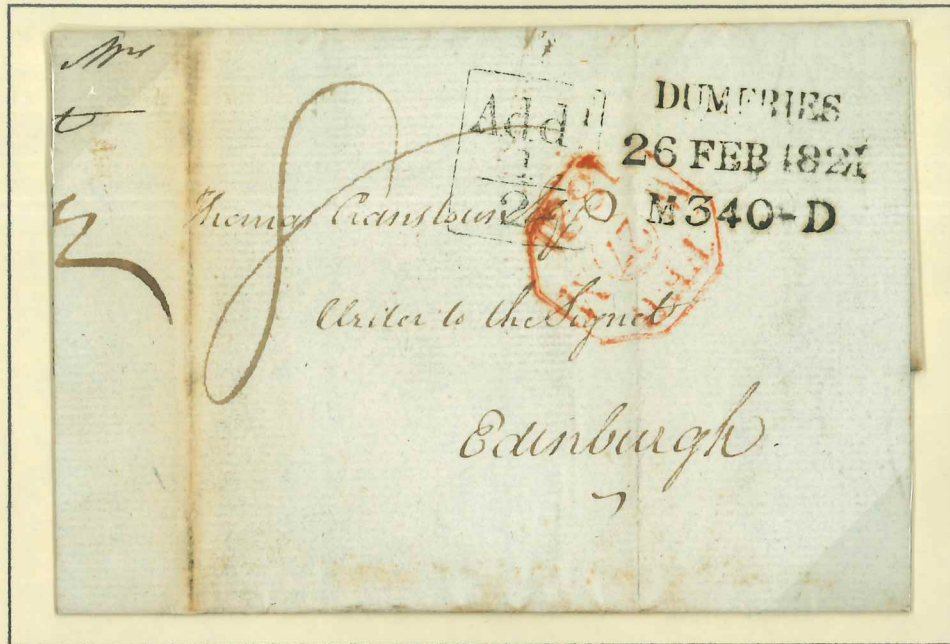 Mrs
Addl
1
2
DUMFRIES
26 FEB 1821
M340-D
Thomas Cranstoun
27
Writer to the Signet
Edinburgh.